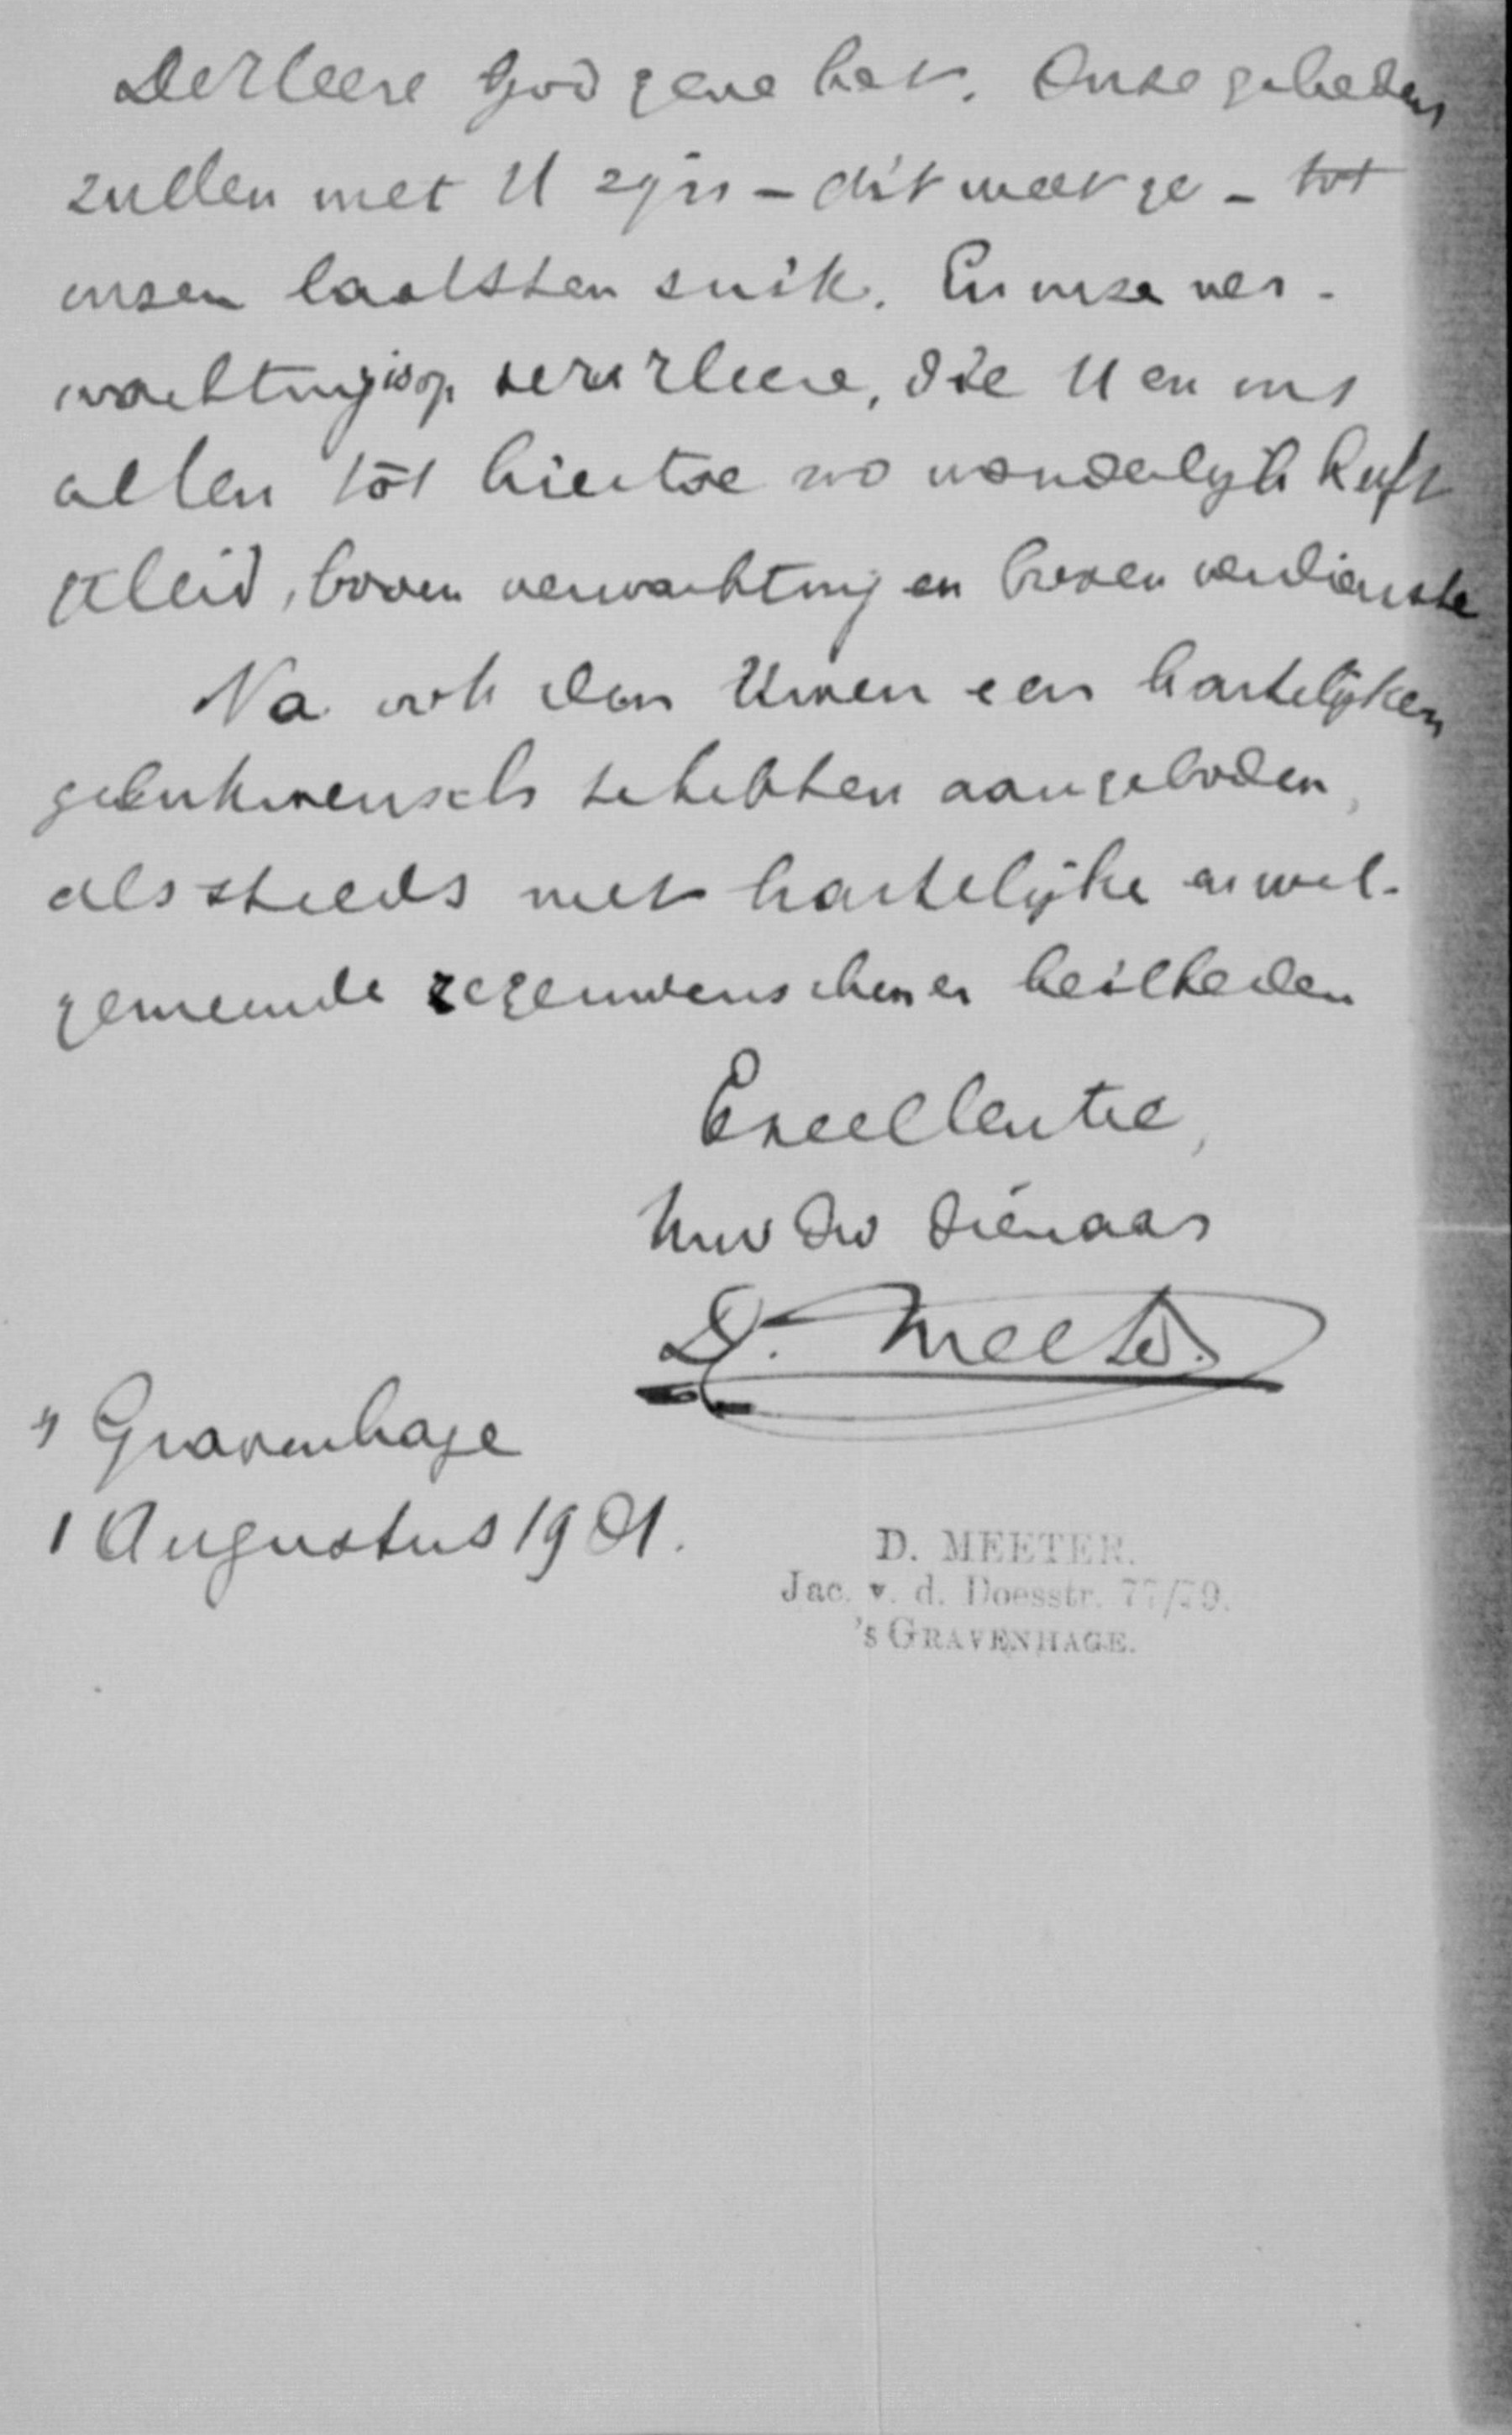 De Heere God geve het. Onze gebeden
zullen met U zijn – dit weet ge – tot
onzen laatsten snik. En onze ver-
wachting is op den Heere, die U en ons
allen tot hiertoe zoo wonderlijk heeft
geleid, boven verwachting en boven verdienste
Na ook den Uwen een hartelijken
gelukwensch te hebben aangeboden,
als steeds met hartelijke en wel-
gemeende zegenwenschen en heilbeden
Excellentie,
Uw Dw Dienaar
D. Meeter.
's Gravenhage
1 Augustus 1901.
D. MEETER.
Jac. v. d. Doesstr. 77/79.
's GRAVENHAGE.